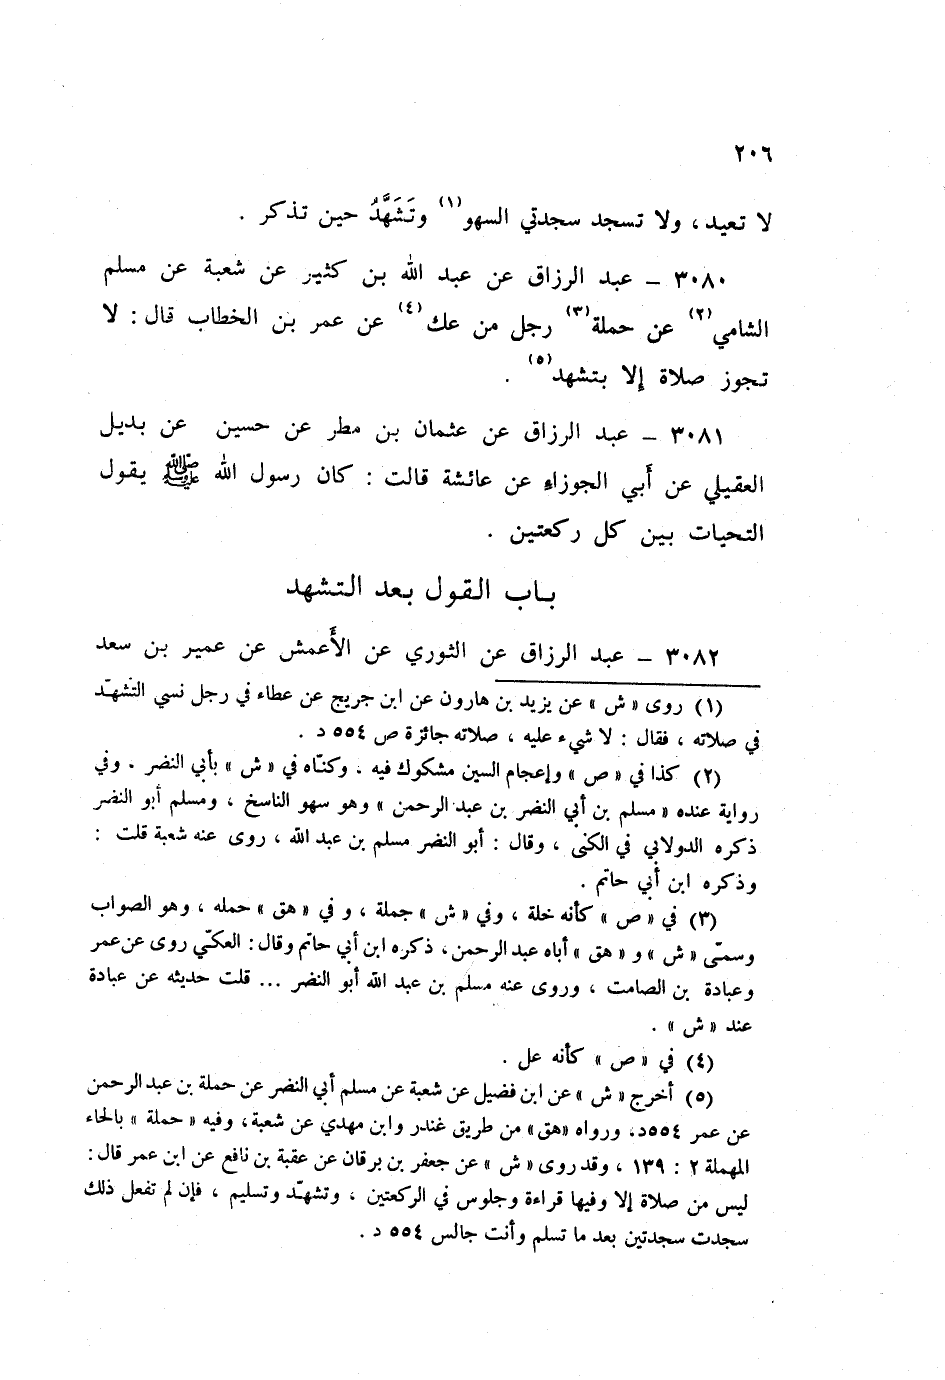 ٢٠٦
لا تعيد ، ولا تسجد سجدتي السهو(١) وتَشَهَّدُ حين تذكر .
٣٠٨٠ – عبد الرزاق عن عبد الله بن كثير عن شعبة عن مسلم
الشامي(٢) عن حملة(٣) رجل من عك(٤) عن عمر بن الخطاب قال : لا
تجوز صلاة إلا بتشهد(٥) .
٣٠٨١ – عبد الرزاق عن عثمان بن مطر عن حسين عن بديل
العقيلي عن أَبي الجوزاءِ عن عائشة قالت : كان رسول الله ﷺ يقول
التحيات بين كل ركعتين .
باب القول بعد التشهد
٣٠٨٢ – عبد الرزاق عن الثوري عن الأَعمش عن عمير بن سعد
(١) روى « ش » عن يزيد بن هارون عن ابن جريج عن عطاء في رجل نسي التشهّد
في صلاته ، فقال : لا شيء عليه ، صلاته جائزة ص ٥٥٤ د .
(٢) كذا في « ص » وإعجام السين مشكوك فيه . وكنّاه في « ش » بأبي النضر . وفي
رواية عنده « مسلم بن أبي النضر بن عبد الرحمن » وهو سهو الناسخ ، ومسلم أبو النضر
ذكره الدولابي في الكنى ، وقال : أبو النضر مسلم بن عبد الله ، روى عنه شعبة قلت :
وذكره ابن أبي حاتم .
(٣) في « ص » كأنه خلة ، وفي « ش » جملة ، و في « هق » حمله ، وهو الصواب
وسمّى « ش » و « هق » أباه عبد الرحمن ، ذكره ابن أبي حاتم وقال : العكّي روى عن عمر
وعبادة بن الصامت ، وروى عنه مسلم بن عبد الله أبو النضر ... قلت حديثه عن عبادة
عند « ش » .
(٤) في « ص » كأنه عل .
(٥) أخرج « ش » عن ابن فضيل عن شعبة عن مسلم أبي النضر عن حملة بن عبد الرحمن
عن عمر ٥٥٤د، ورواه «هق» من طريق غندر وابن مهدي عن شعبة، وفيه « حملة » بالحاء
المهملة ٢ : ١٣٩ ، وقد روى « ش » عن جعفر بن برقان عن عقبة بن نافع عن ابن عمر قال :
ليس من صلاة إلا وفيها قراءة وجلوس في الركعتين ، وتشهّد وتسليم ، فإن لم تفعل ذلك
سجدت سجدتين بعد ما تسلم وأنت جالس ٥٥٤ د .